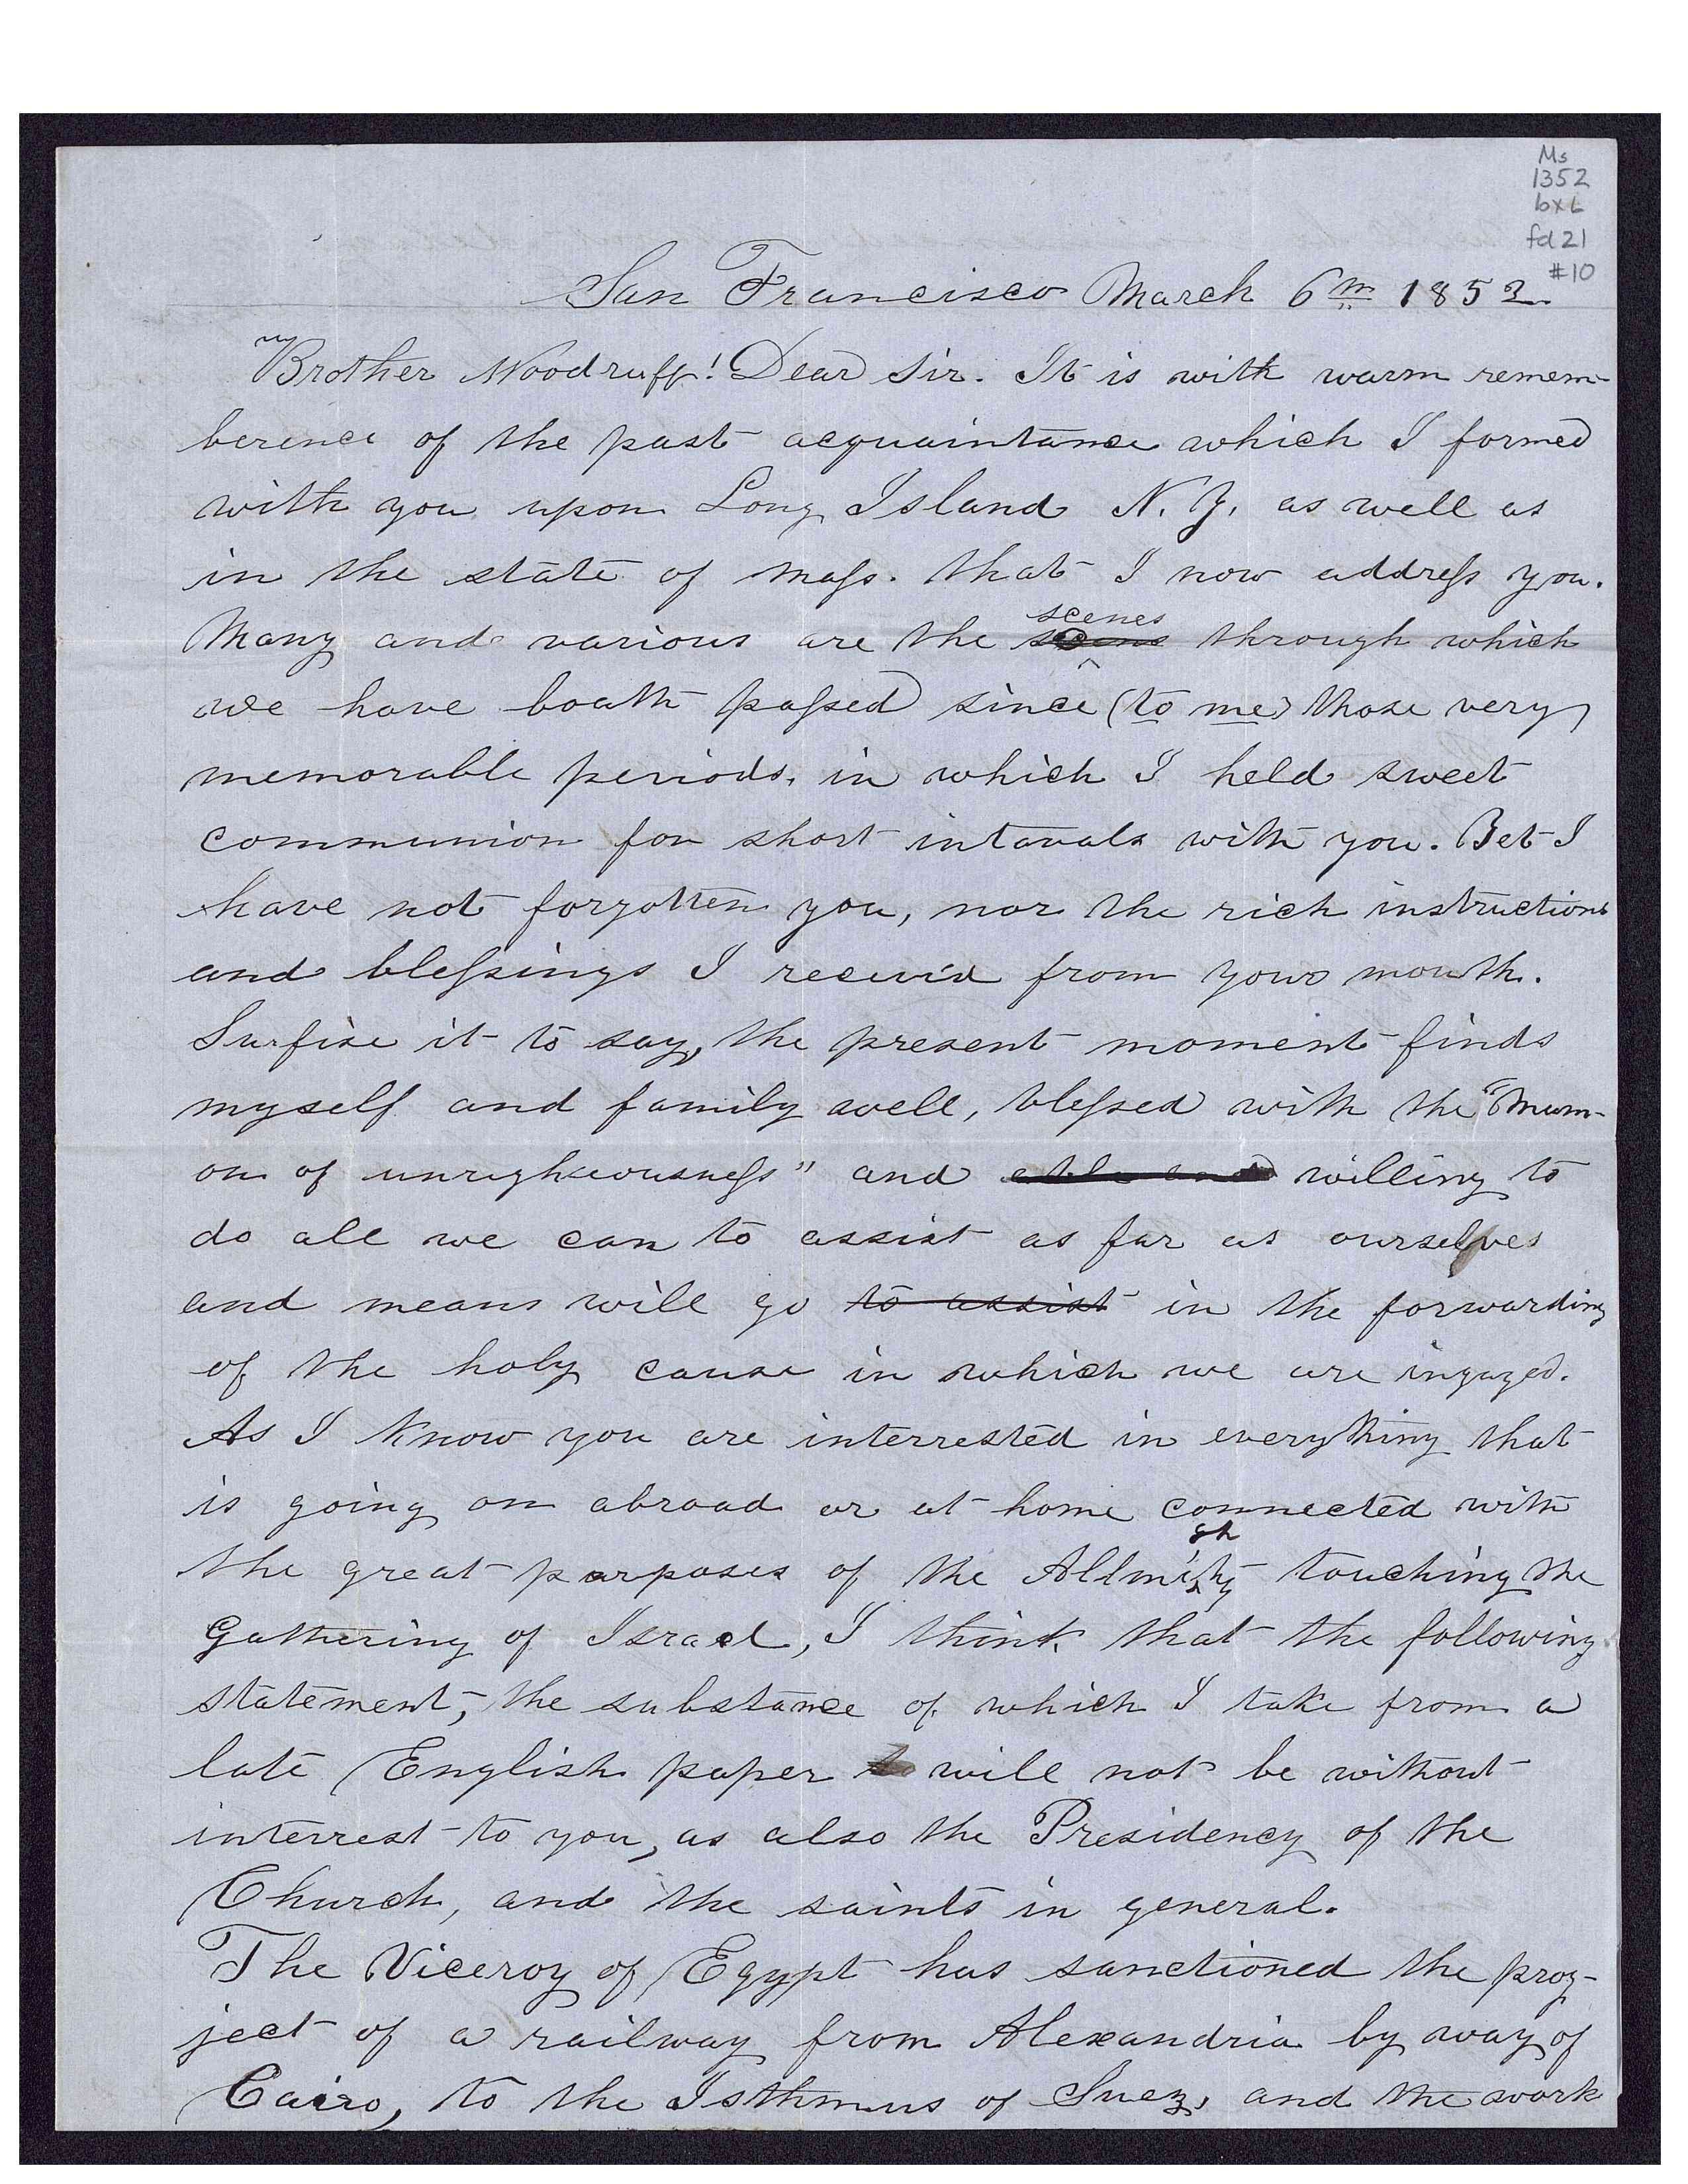 Ms
1352
bx6
fd 21
#10
San Francisco March 6th 1852.
Brother Woodruff! Dear Sir. It is with warm remem-
berence of the past acquaintance which I formed
with you upon Long Island N. Y. as well as
in the state of Mass. that I now address you.
Many and various are the scenes through which
we have boath passed since (to me) those very
memorable periods, in which I held sweet
communion for short intavals with you. Bet I
have not forgotten you, nor the rich instructions
and blessings I receivd from your mouth.
Surfise it to say, the present moment finds
myself and family well, blessed with the "Mum-
on of unrighteousness" and able and willing to
do all we can to assist as far as ourselves
and means will go to assist in the forwarding
of the holy cause in which we are ingaged.
As I know you are interrested in everything that
is going on abroad or at home connected with
the great purposes of the Allmighty touching the
Gathering of Israel, I think that the following
statement, the substance of which I take from a
late English paper will not be without
interrest to you, as also the Presidency of the
Church, and the saints in general.
The Viceroy of Egypt has sanctioned the proj-
ject of a railway from Alexandria by way of
Cairo, to the Isthmus of Suez, and the work